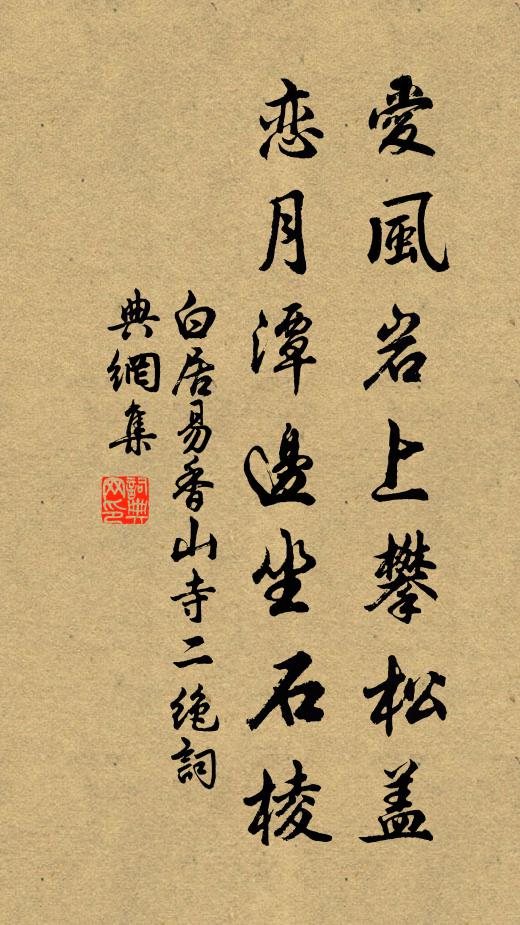 愛風岩上攀松盖
恋月潭邊坐石棱
白居易香山寺二絶詞
典網集
詞典网印